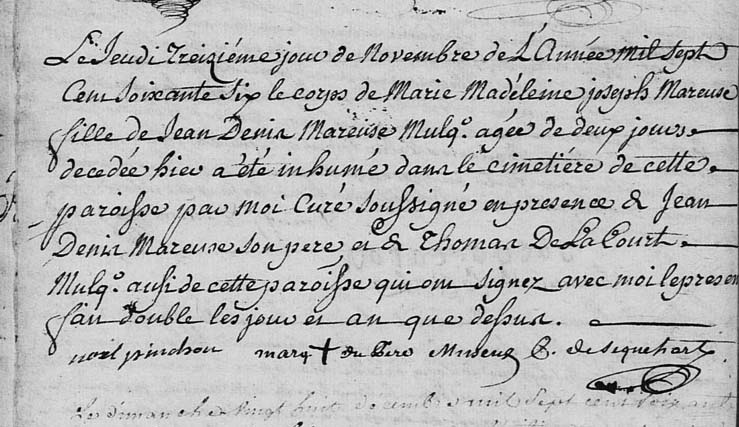 Le Jeudi treiziéme jour de Novembre de L'Année mil sept
Cent Soixante Six le corps de Marie Madéleine joseph Mareuse
fille de Jean Denis Mareuse Mulq.^r agée de deux jours
decedée hier a été inhumé dans le cimetiére de cette
paroisse par moi Curé soussigné en presence de Jean
Denis Mareuse son pere et de Thomas De La Court
Mulq.^r aussi de cette paroisse qui ont signez avec moi le present
fait double les jour et an que dessus.
marq + du pere
Le dimanche vingt huit decembre mil sept cent soixante